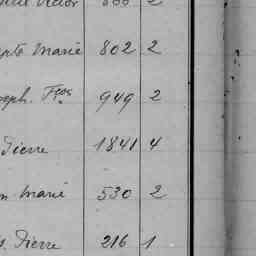 Victor 2
Marie 802 2
Fçois 949 2
Pierre 1841 4
Marie 530 2
Pierre 216 1